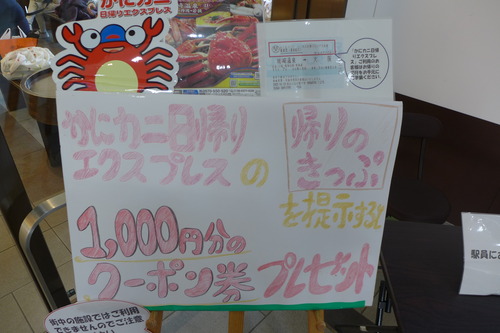 かにカニ
日帰りエクスプレス
「かにカニ日帰
かにカニ日帰り
エクスプレスの
帰りの
きっぷ
を提示すると
1,000円分の
クーポン券プレゼント
街中の施設ではご利用
できませんのでご注意
駅員にお